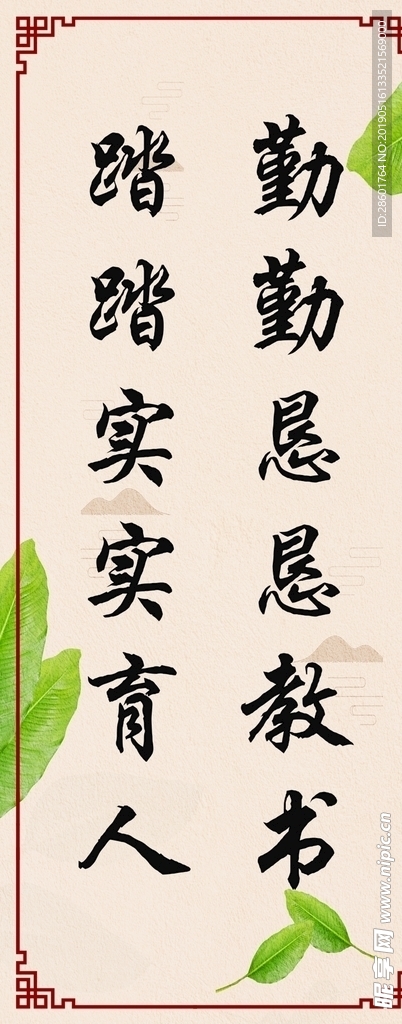 勤勤恳恳教书
踏踏实实育人
ID:28601764 NO:20190516133521569000
昵享网 www.nipic.cn